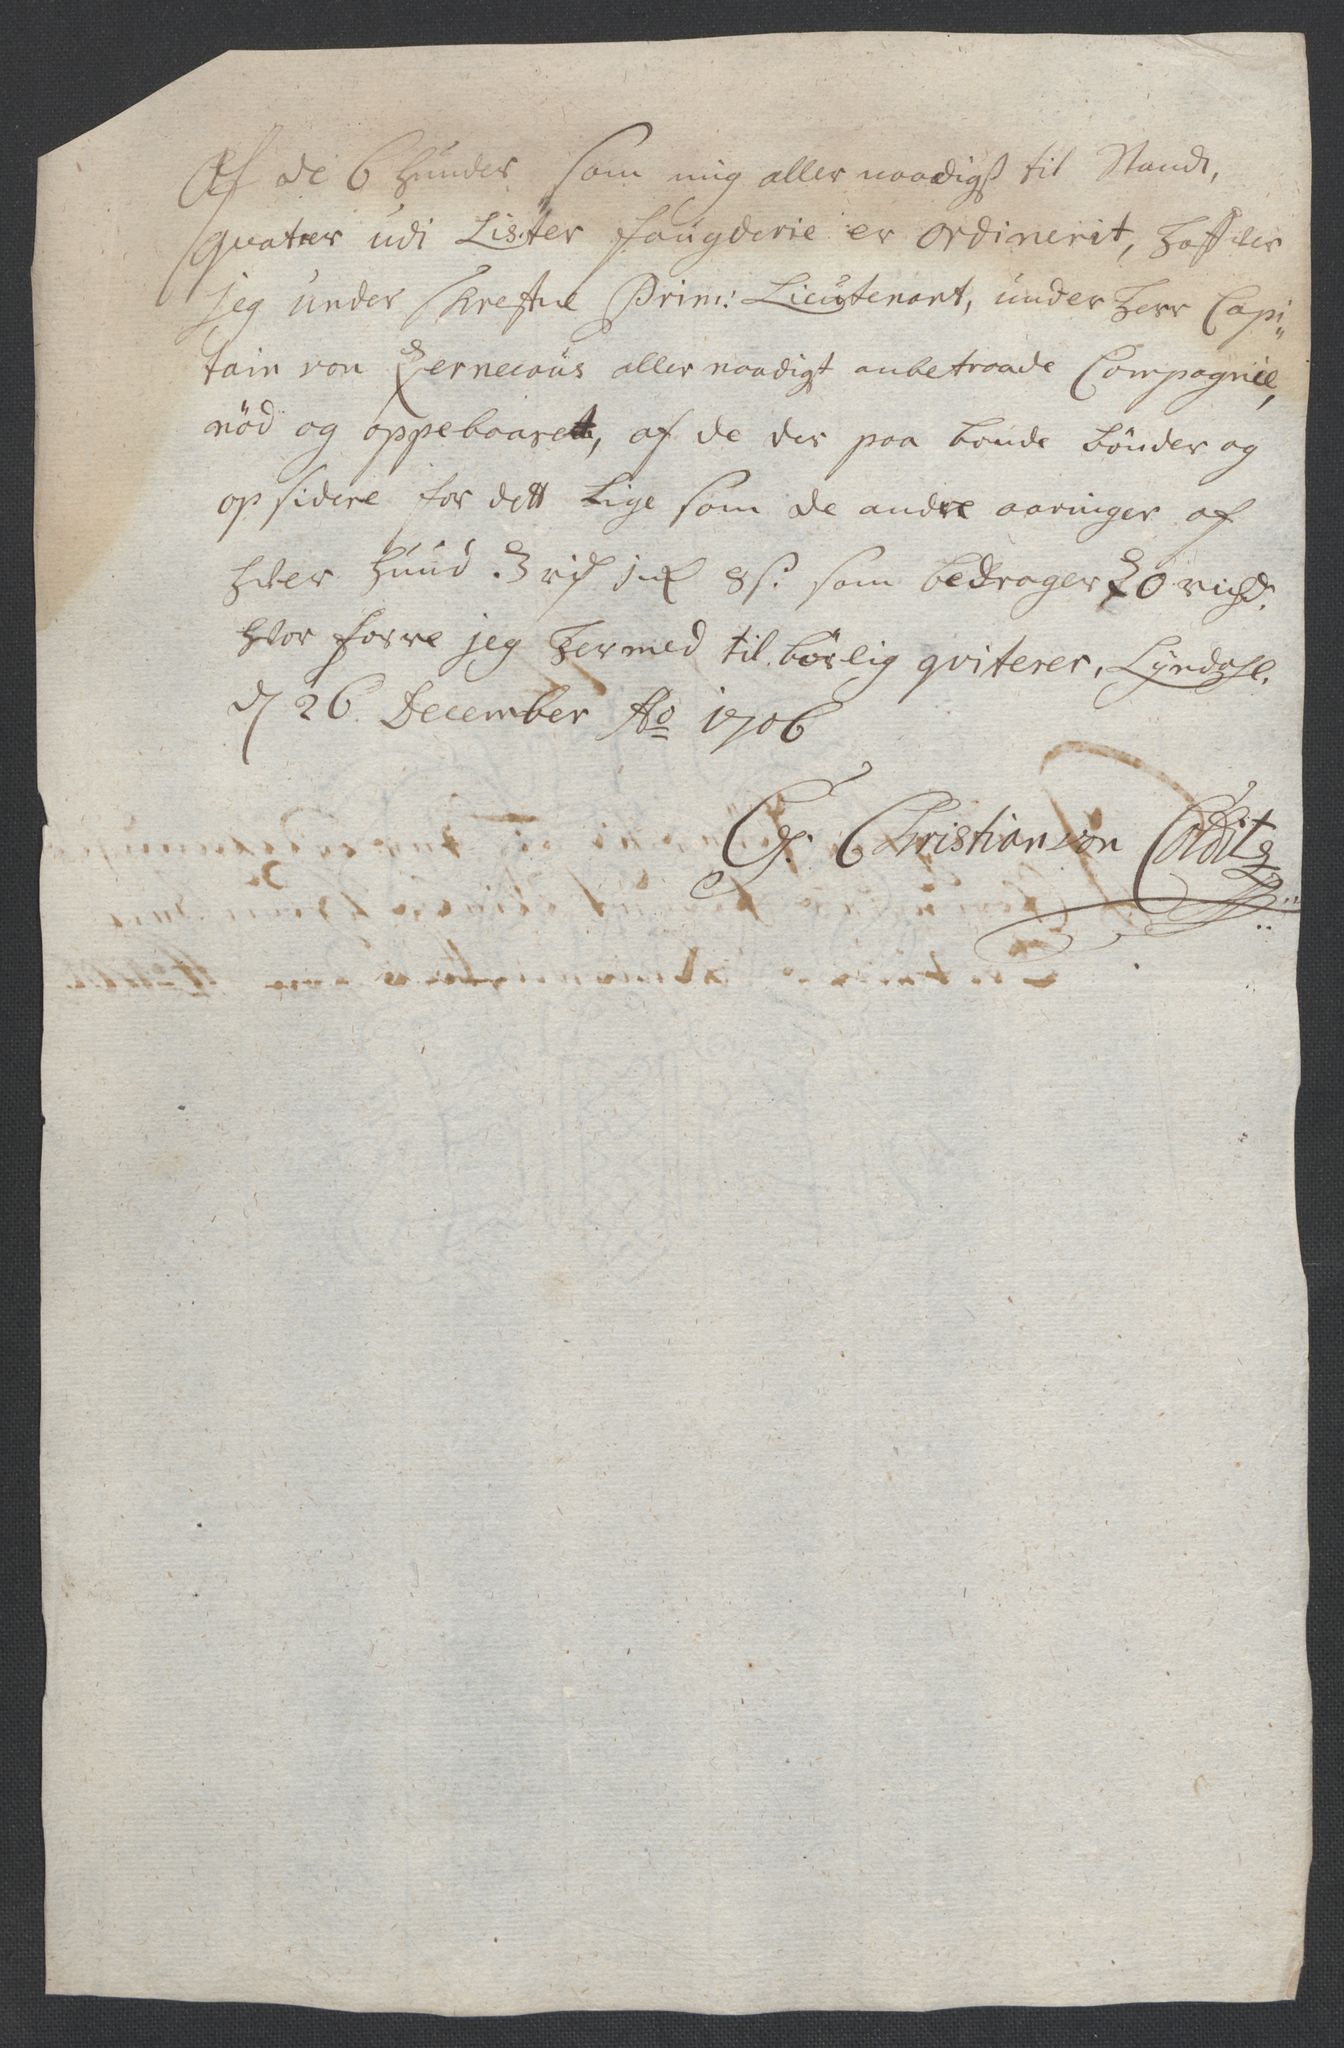 Af de 6 Huuder som mig aller naadigst til Stands,
qvarter udi Lister fougderie er ordinerit, haffver
jeg under skrefne Prim: Lieutenant, under Herr Capi-
tain von Zernecaus aller naadigst anbetroade Compagnie,
nöd og oppebaaret, af de der paa boende bönder og
opsidere for dett Lige som de andre aaringer af
hver Huud 3 rd 8 s. som bedrager 20 richd.
hvor forre jeg Hermed tilbörlig qviterer, Lyngdahl.
d 26. December Ao 1706
Christian von Colditz